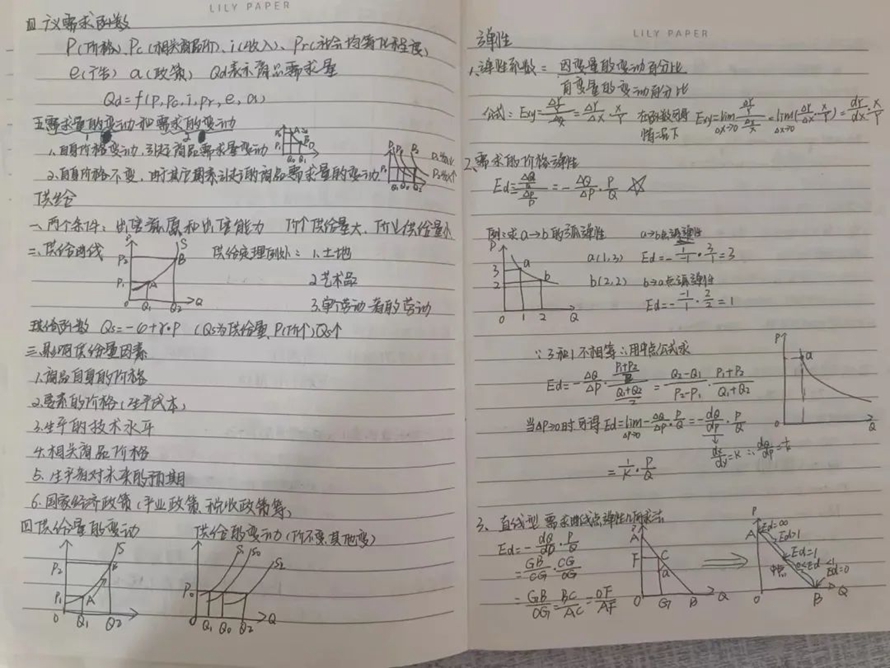 LILY PAPER
四.议需求函数
P(价格), Pc(相关商品价), i(收入), Pr(社会均等化程度)
e(广告) a(政策) Qd表示商品需求量
Qd=f(P,Pc,i,pr,e,a)
五需求量的变动和需求的变动
1.自身价格变动,引起商品需求量变动
2.自身价格不变,由于其它因素引起的商品需求量的变动
供给
一、两个条件:出售意愿和出售能力 价个供给量大、价少供给量小
二、供给曲线 供给定理例外:1.土地
2艺术品
3.单劳动者的劳动
供给函数 Qs=-δ+γ·P (Qs为供给量,P(价个)Qs个
三.影响供给量因素
1.商品自身的价格
2.要素的价格(生产成本)
3.生产的技术水平
4.相关商品价格
5.生产者对未来的预期
6.国家经济政策(产业政策、税收政策等)
四供给量的变动 供给的变动(价不变,其他变)
LILY PAPER
弹性
1.弹性系数=因变量的变动百分比
自变量的变动百分比
公式:Exy=ΔY/Y/ΔX/X=ΔY/ΔX·X/Y 在函数可导情况下 Exy=lim ΔX→0 =lim ΔX→0(ΔY/ΔX·X/Y)=dY/dX·X/Y
2.需求的价格弹性
Ed=ΔQ/Q/ΔP/P=-ΔQ/ΔP·P/Q ☆
例:求a→b的弧弹性 a→b点弧弹性
a(1,3) Ed=-1/-1·3/1=3
b(2,2) b→a点弧弹性
Ed=-(-1/1)·2/2=1
∵3和1不相等∴用中点公式求
Ed=-ΔQ/ΔP·P1+P2/2/Q1+Q2/2=Q2-Q1/P2-P1·P1+P2/Q1+Q2
当ΔP→0时可得Ed=lim ΔP→0 -ΔQ/ΔP·P/Q=-dQ/dP·P/Q
=1/K·P/Q
3、直线型需求曲线点弹性几何求法
Ed=-dQ/dP·P/Q
=GB/CG·CG/OG
=GB/OG=BC/AC=OF/AF
Ed=∞
Ed>1
Ed=1
Ed=0